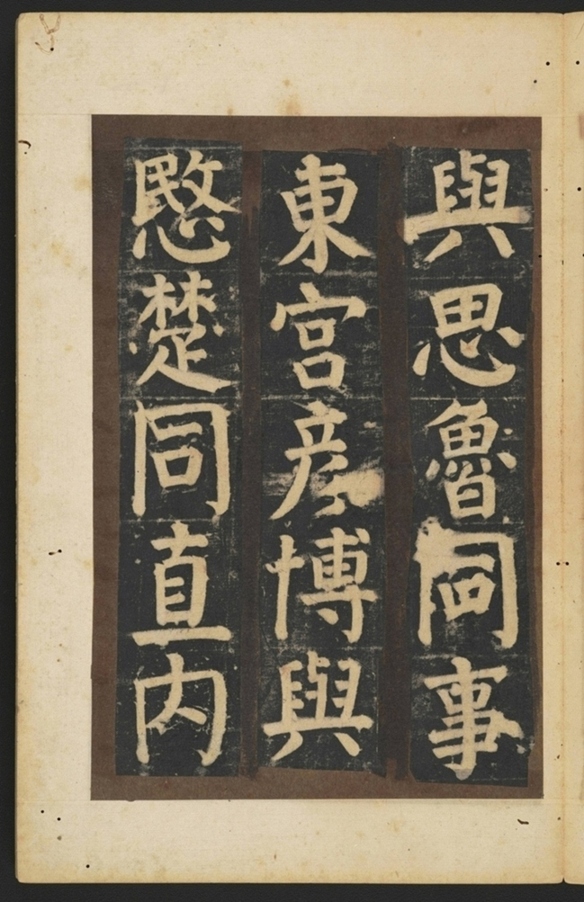 與思魯同事
東宮彥博與
愍楚同直内